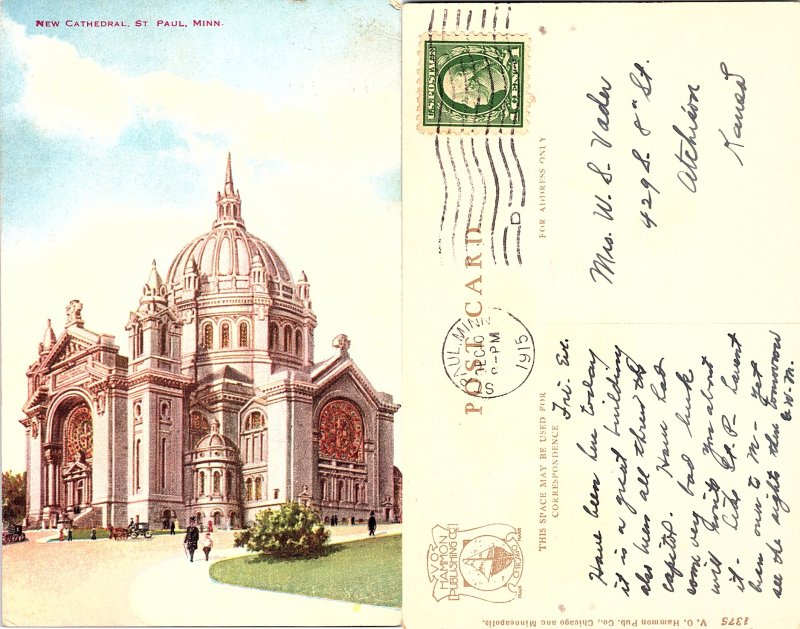 New Cathedral, St Paul, Minn.
U.S. POSTAGE
1 CENT 1
PAUL, MINN
DEC 10
8-PM
1915
D
POST CARD
FOR ADDRESS ONLY
Mrs. W. S. Vader
429 S. 8" St.
Atchison
Kansas
THIS SPACE MAY BE USED FOR
CORRESPONDENCE
Fri. Eve.
Have been here today
it is a great building
also been all thru the
capitol. Have had
some very bad luck
will write you about
it. Like St. P. havent
been over to M- yet
see the sights there tomorrow
E.W.M.
V.O. HAMMON
PUBLISHING CO.
CHICAGO
V. O. Hammon Pub. Co., Chicago and Minneapolis.
1375